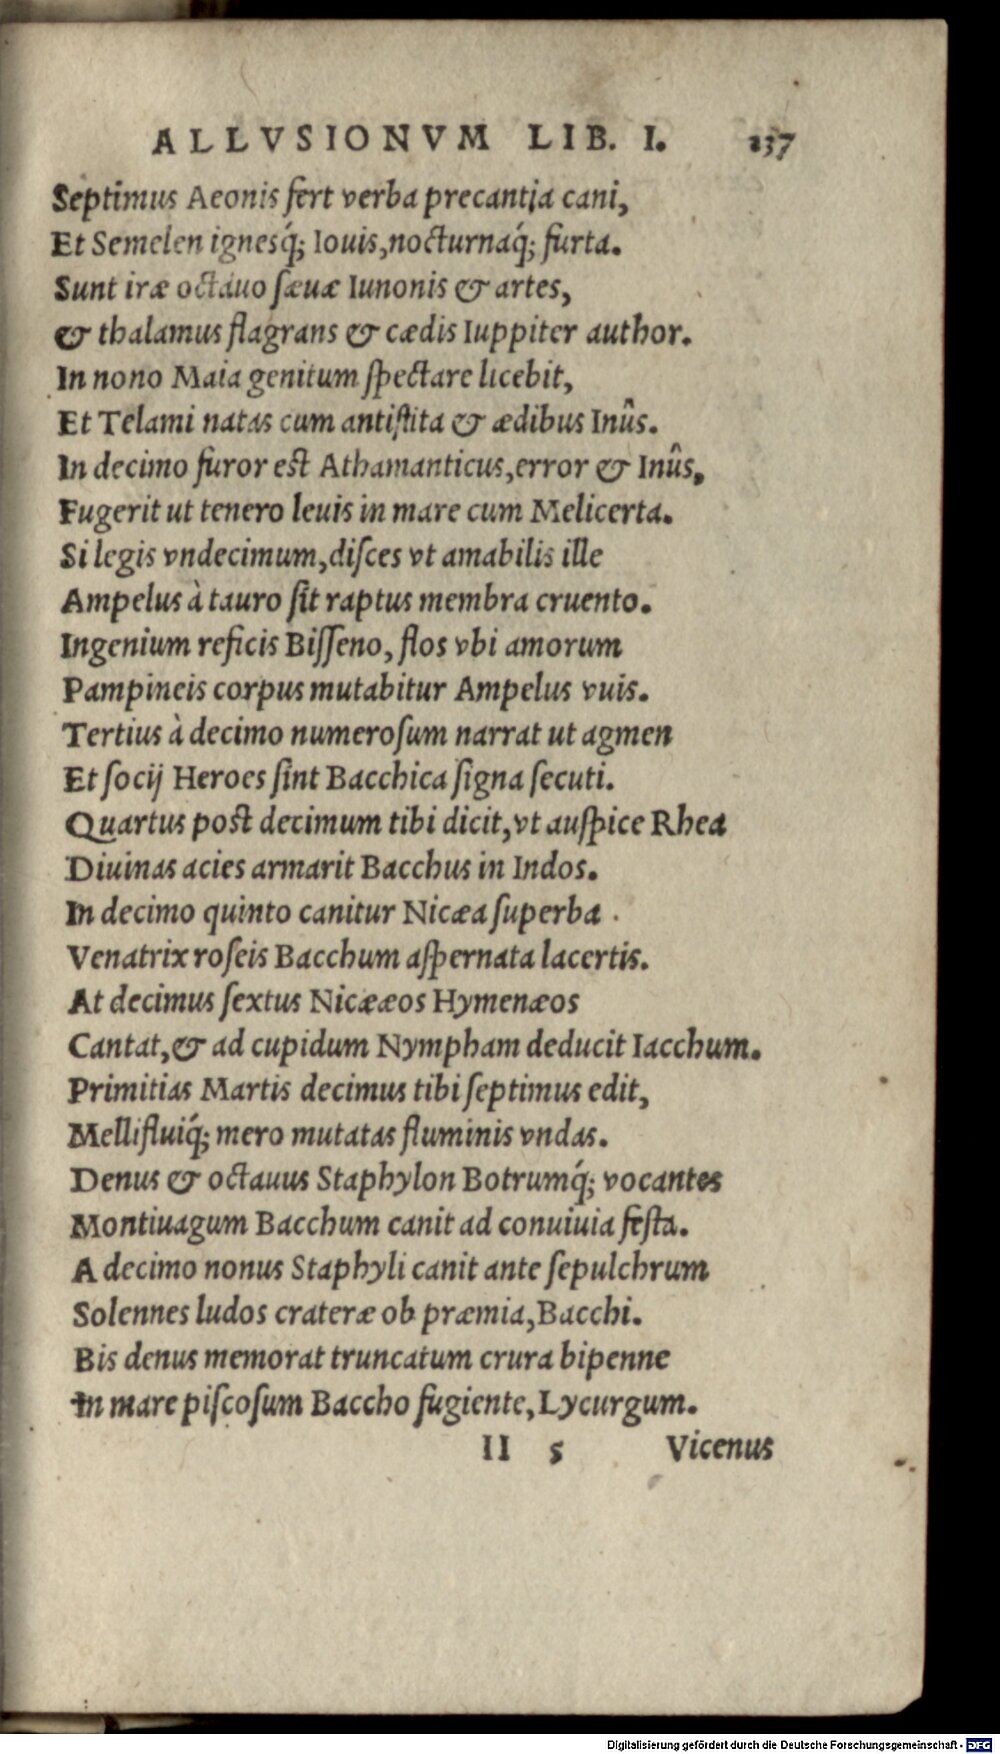 ALLVSIONVM LIB. I. 137
Septimus Aeonis fert verba precantia cani,
Et Semelen ignesq́; Iouis, nocturnaq́; furta.
Sunt iræ octauo sæuæ Iunonis & artes,
& thalamus flagrans & cædis Iuppiter author.
In nono Maia genitum spectare licebit,
Et Telami natas cum antistita & ædibus Inûs.
In decimo furor est Athamanticus, error & Inûs,
Fugerit ut tenero leuis in mare cum Melicerta.
Si legis vndecimum, disces vt amabilis ille
Ampelus à tauro sit raptus membra cruento.
Ingenium reficis Bisseno, flos vbi amorum
Pampineis corpus mutabitur Ampelus vuis.
Tertius à decimo numerosum narrat ut agmen
Et socij Heroes sint Bacchica signa secuti.
Quartus post decimum tibi dicit, vt auspice Rhea
Diuinas acies armarit Bacchus in Indos.
In decimo quinto canitur Nicæa superba
Venatrix roseis Bacchum aspernata lacertis.
At decimus sextus Nicææos Hymenæos
Cantat, & ad cupidum Nympham deducit Iacchum.
Primitias Martis decimus tibi septimus edit,
Mellifluiq́; mero mutatas fluminis vndas.
Denus & octauus Staphylon Botrumq́; vocantes
Montiuagum Bacchum canit ad conuiuia festa.
A decimo nonus Staphyli canit ante sepulchrum
Solennes ludos crateræ ob præmia, Bacchi.
Bis denus memorat truncatum crura bipenne
In mare piscosum Baccho fugiente, Lycurgum.
II 5 Vicenus
Digitalisierung gefördert durch die Deutsche Forschungsgemeinschaft - DFG